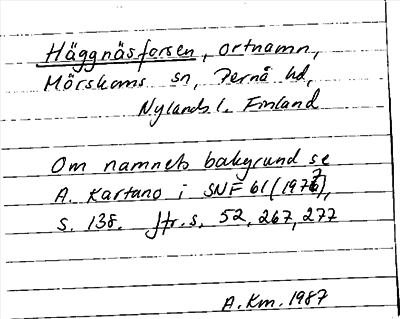 Häggnäsforsen, ortnamn,
Mörskoms sn, Pernå hd,
Nylands l. Finland
Om namnets bakgrund se
A. Kartano i SNF 61 (1977),
s. 138. Jfr. s. 52, 267, 277
A.Km. 1987